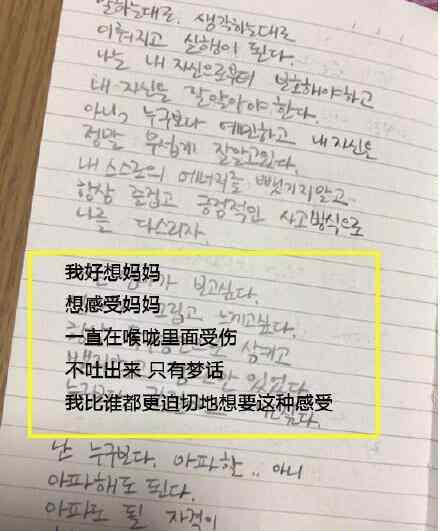 말하는대로. 생각하는대로
이뤄지고 실행이 된다.
나는 내 자신으로부터 보호해야하고
내 자신을 잘 알아야 한다.
아니, 누구보다 예민하고 내 자신은
정말 무섭게 잘알고있다.
내 스스로의 에너지를 뺏기지말고
항상 즐겁고 긍정적인 사고방식으로
나를 다스리자.
보고싶다.
我好想妈妈
느끼고싶다.
想感受妈妈
삼키고
一直在喉咙里面受伤
있었다
不吐出来 只有梦话
我比谁都更迫切地想要这种感受
난 누구보다. 아파할.. 아니
아파해도 된다.
아파도 될 자격이